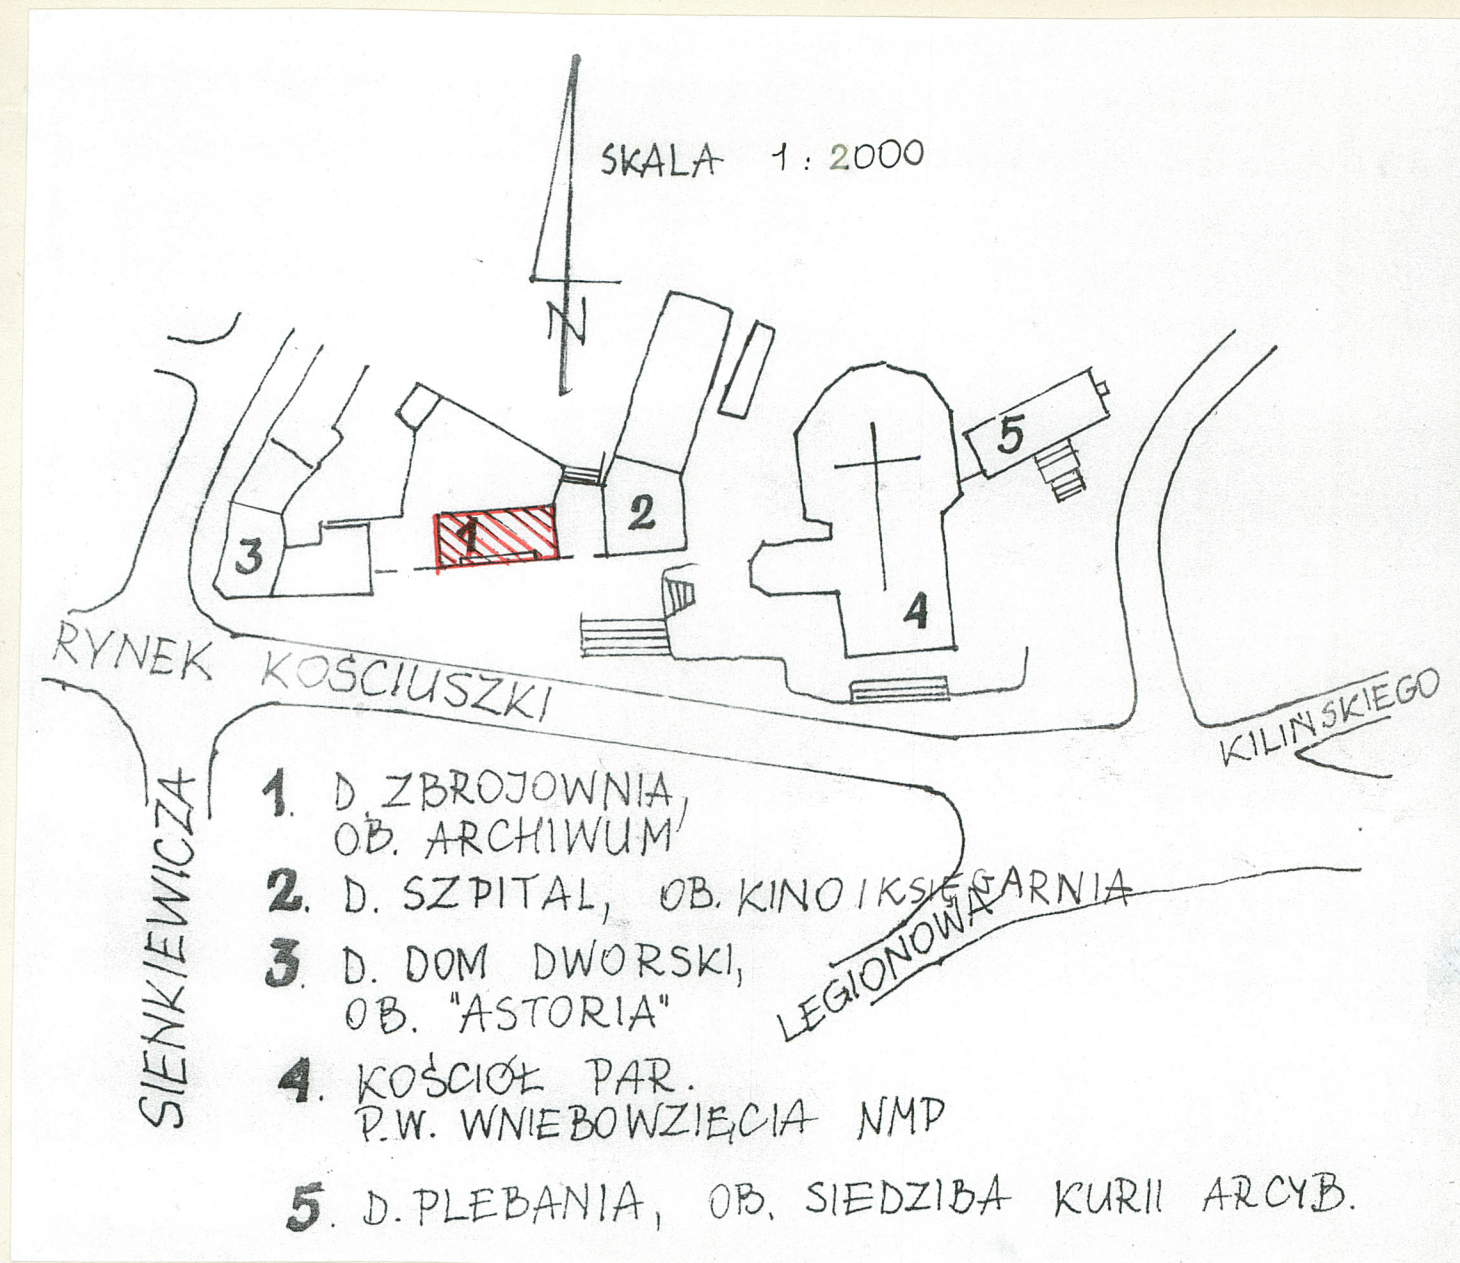 SKALA 1:2000
N
1
2
3
4
5
RYNEK KOŚCIUSZKI
KILIŃSKIEGO
SIENKIEWICZA
LEGIONOWA
1. D. ZBROJOWNIA,
OB. ARCHIWUM
2. D. SZPITAL, OB. KINO I KSIĘGARNIA
3. D. DOM DWORSKI,
OB. "ASTORIA"
4. KOŚCIÓŁ PAR.
P.W. WNIEBOWZIĘCIA NMP
5. D. PLEBANIA, OB. SIEDZIBA KURII ARCYB.